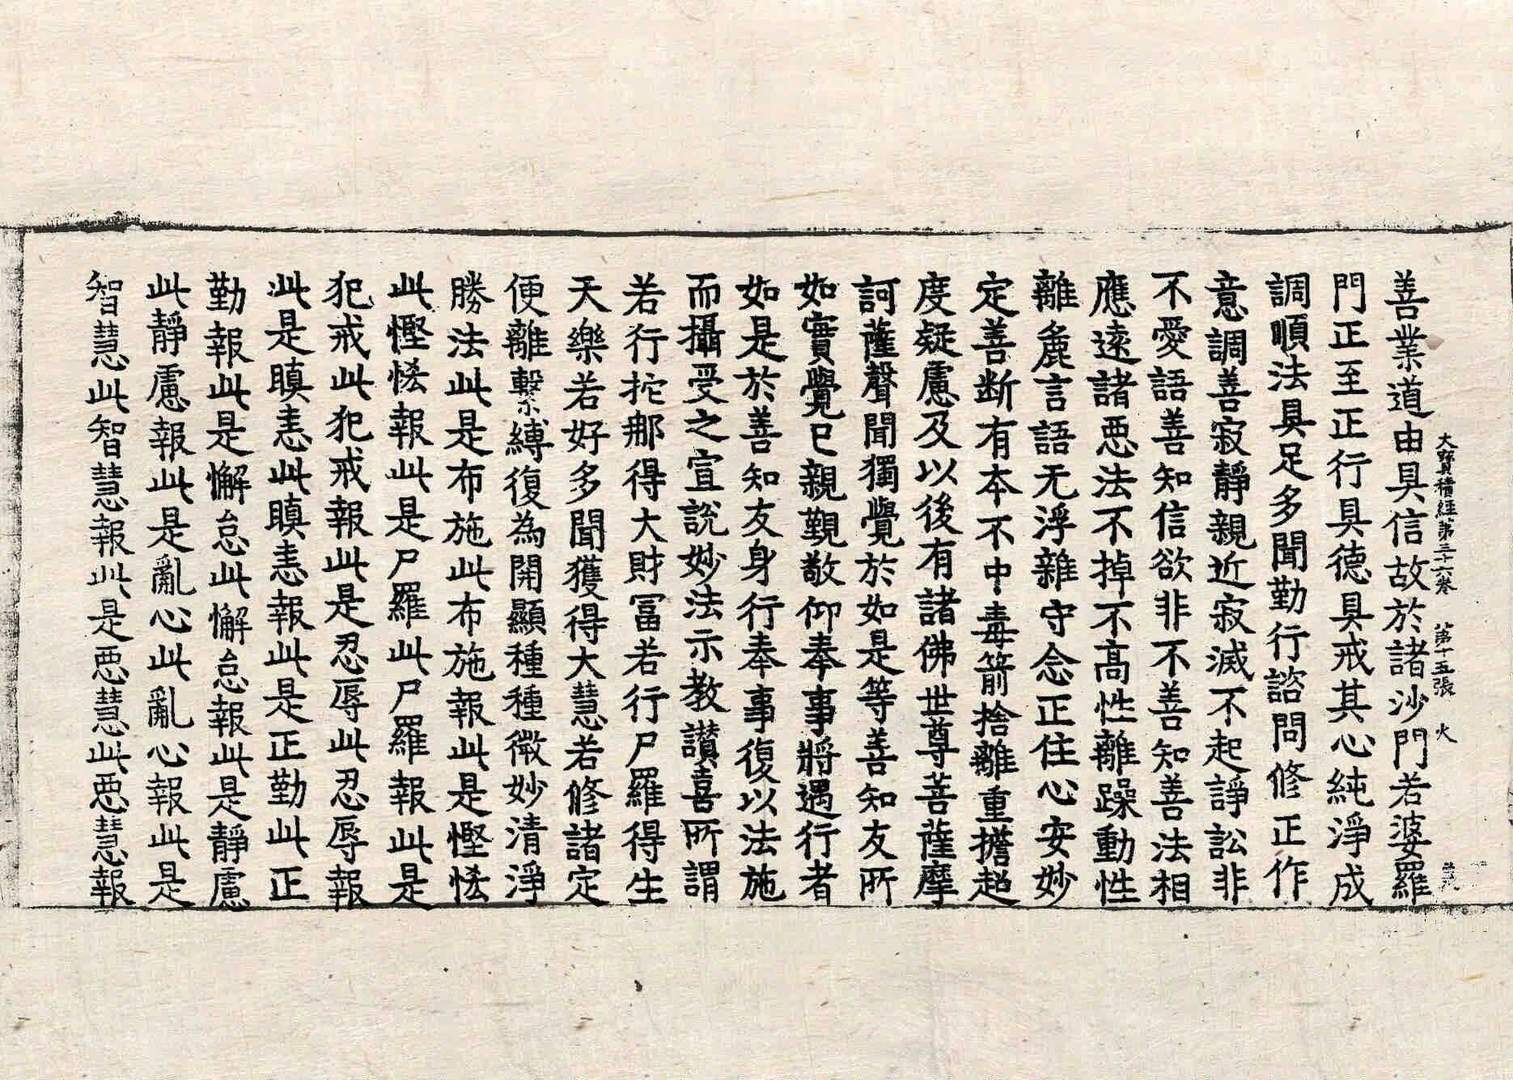 善業道由具信故於諸沙門若婆羅
大寶積經第三十六卷　第十五張　火
門正至正行具德具戒其心純淨成
調順法具足多聞勤行諮問修正作
意調善寂靜親近寂滅不起諍訟非
不愛語善知信欲非不善知善法相
應遠諸惡法不掉不高性離躁動性
離麁言語无浮雜守念正住心安妙
定善断有本不中毒箭捨離重擔超
度疑慮及以後有諸佛世尊菩薩摩
訶薩聲聞獨覺於如是等善知友所
如實覺已親覲敬仰奉事將遇行者
如是於善知友身行奉事復以法施
而攝受之宣說妙法示教讃喜所謂
若行拕那得大財冨若行尸羅得生
天樂若好多聞獲得大慧若修諸定
便離繫縛復為開顯種種微妙清淨
勝法此是布施此布施報此是慳悋
此慳悋報此是尸羅此尸羅報此是
犯戒此犯戒報此是忍辱此忍辱報
此是瞋恚此瞋恚報此是正勤此正
勤報此是懈怠此懈怠報此是靜慮
此靜慮報此是亂心此亂心報此是
智慧此智慧報此是惡慧此惡慧報